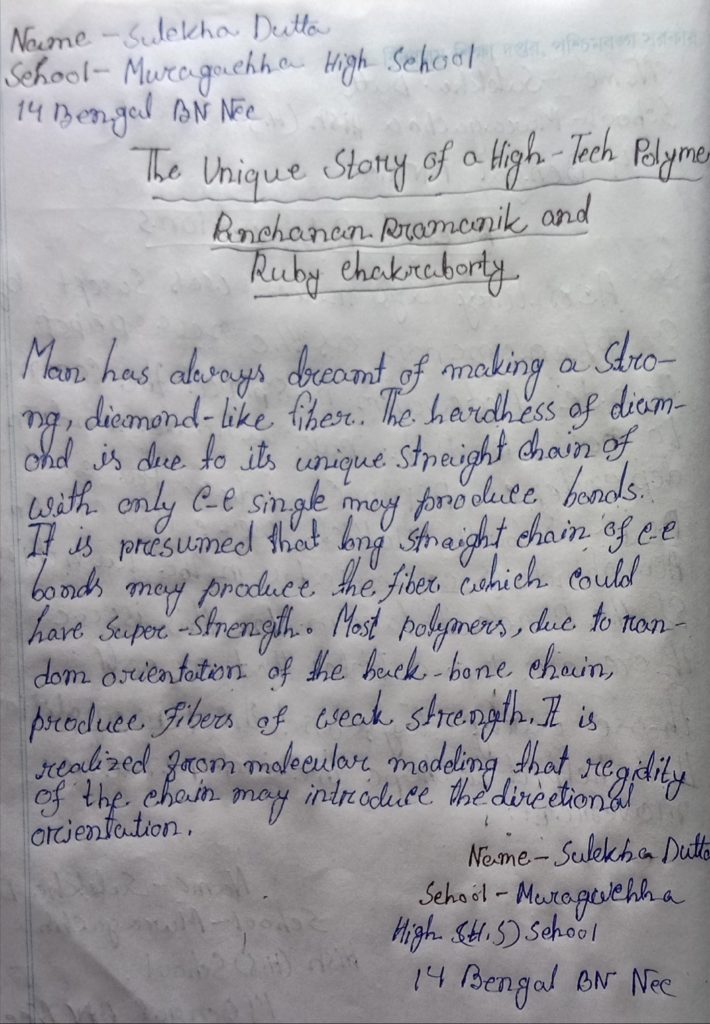 Name - Sulekha Dutta
School- Muragachha High School
14 Bengal BN Ncc
The Unique Story of a High-Tech Polyme
Panchanan Pramanik and
Ruby Chakraborty
Man has always dreamt of making a Stro-
ng, diamond-like fiber. The hardness of diam-
ond is due to its unique straight chain of
with only c-c single may produce bonds.
It is presumed that long straight chain of c-c
bonds may produce the fiber which could
have super-strength. Most polymers, due to ran-
dom orientation of the back-bone chain,
produce fibers of weak strength. It is
realized from molecular modeling that regidity
of the chain may introduce the directional
orientation.
Name - Sulekha Dutta
School - Muragachha
High (H.S) School
14 Bengal BN Ncc